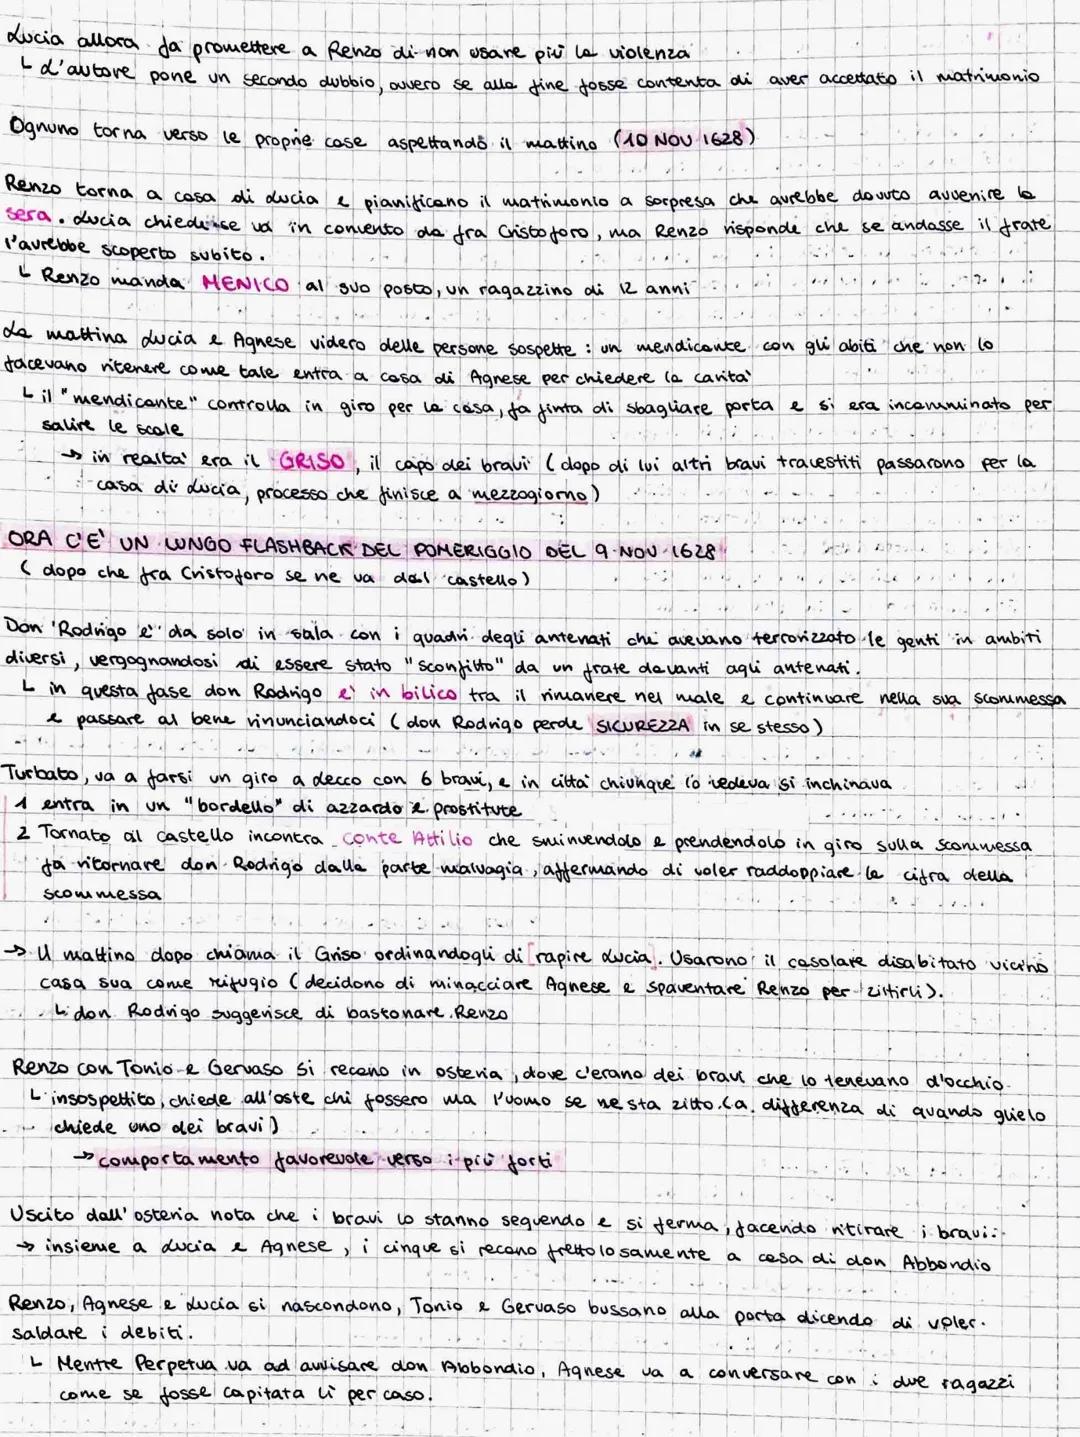 Lucia allora fa promettere a Renzo di non usare più la violenza
└ L'autore pone un secondo dubbio, ovvero se alla fine fosse contenta di aver accettato il matrimonio
Ognuno torna verso le proprie case aspettando il mattino (10 NOV 1628)
Renzo torna a casa di Lucia e pianificano il matrimonio a sorpresa che avrebbe dovuto avvenire la
sera. Lucia chiede se va in convento da fra Cristoforo, ma Renzo risponde che se andasse il frate
l'avrebbe scoperto subito.
└ Renzo manda MENICO al suo posto, un ragazzino di 12 anni
La mattina Lucia e Agnese videro delle persone sospette: un mendicante con gli abiti che non lo
facevano ritenere come tale entra a casa di Agnese per chiedere la carità
└ il "mendicante" controlla in giro per la casa, fa finta di sbagliare porta e si era incamminato per
salire le scale
→ in realtà era il GRISO, il capo dei bravi (dopo di lui altri bravi travestiti passarono per la
casa di Lucia, processo che finisce a mezzogiorno)
ORA C'E' UN LUNGO FLASHBACK DEL POMERIGGIO DEL 9 NOV 1628
(dopo che fra Cristoforo se ne va dal castello)
Don Rodrigo è da solo in sala con i quadri degli antenati che avevano terrorizzato le genti in ambiti
diversi, vergognandosi di essere stato "sconfitto" da un frate davanti agli antenati.
└ in questa fase don Rodrigo è in bilico tra il rimanere nel male e continuare nella sua scommessa
e passare al bene rinunciandoci (don Rodrigo perde SICUREZZA in se stesso)
Turbato, va a farsi un giro a Lecco con 6 bravi, e in città chiunque lo vedeva si inchinava
1 entra in un "bordello" di azzardo e prostitute
2 Tornato al castello incontra conte Attilio che sminuendolo e prendendolo in giro sulla scommessa
fa ritornare don Rodrigo dalla parte malvagia, affermando di voler raddoppiare la cifra della
scommessa
→ Il mattino dopo chiama il Griso ordinandogli di [rapire Lucia]. Usarono il casolare disabitato vicino
casa sua come rifugio (decidono di minacciare Agnese e spaventare Renzo per zittirli).
└ don Rodrigo suggerisce di bastonare Renzo
Renzo con Tonio e Gervaso si recano in osteria, dove c'erano dei bravi che lo tenevano d'occhio
└ insospettito, chiede all'oste chi fossero ma l'uomo se ne sta zitto. (a differenza di quando glielo
chiede uno dei bravi)
→ comportamento favorevole verso i più forti
Uscito dall'osteria nota che i bravi lo stanno seguendo e si ferma, facendo ritirare i bravi.
→ insieme a Lucia e Agnese, i cinque si recano frettolosamente a casa di don Abbondio
Renzo, Agnese e Lucia si nascondono, Tonio e Gervaso bussano alla porta dicendo di voler
saldare i debiti.
└ Mentre Perpetua va ad avvisare don Abbondio, Agnese va a conversare con i due ragazzi
come se fosse capitata lì per caso.